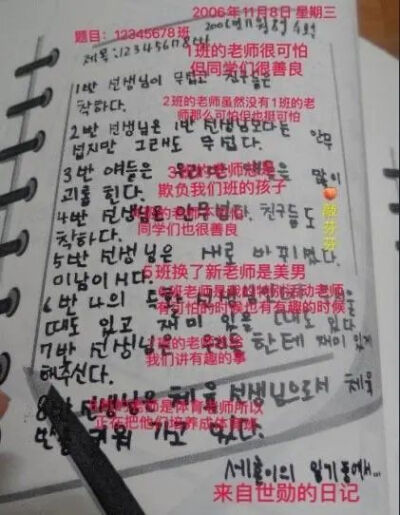 2006年11月8日 星期三
2006년 11월 8일 수요일
题目：12345678班
제목:12345678반
1班的老师很可怕
但同学们很善良
1반 선생님이 무섭고 친구들은
착하다.
2班的老师虽然没有1班的老
师那么可怕但也挺可怕
2반 선생님은 1반 선생님보다는 안무
섭지만 그래도 무섭다.
3반 애들은 우리반 많이
괴롭힌다.
欺负我们班的孩子
4반 선생님은 안무섭다. 친구들도
착하다.
同学们也很善良
5반 선생님은 새로 바뀌었다.
미남이시다.
5班换了新老师是美男
6반 나의 특활 선생님
6班老师是我的特别活动老师
有可怕的时候也有有趣的时候
때도 있고 재미 있을 때도 있다
7반 선생님 한테 재미있게
我们讲有趣的事
해주신다.
8반 선생님은 체육 선생님으로서 체육
老师是体育老师所以
正在把他们培养成体育班
반을 키워 가고 있다.
세훈이의 일기중에서...
来自世勋的日记